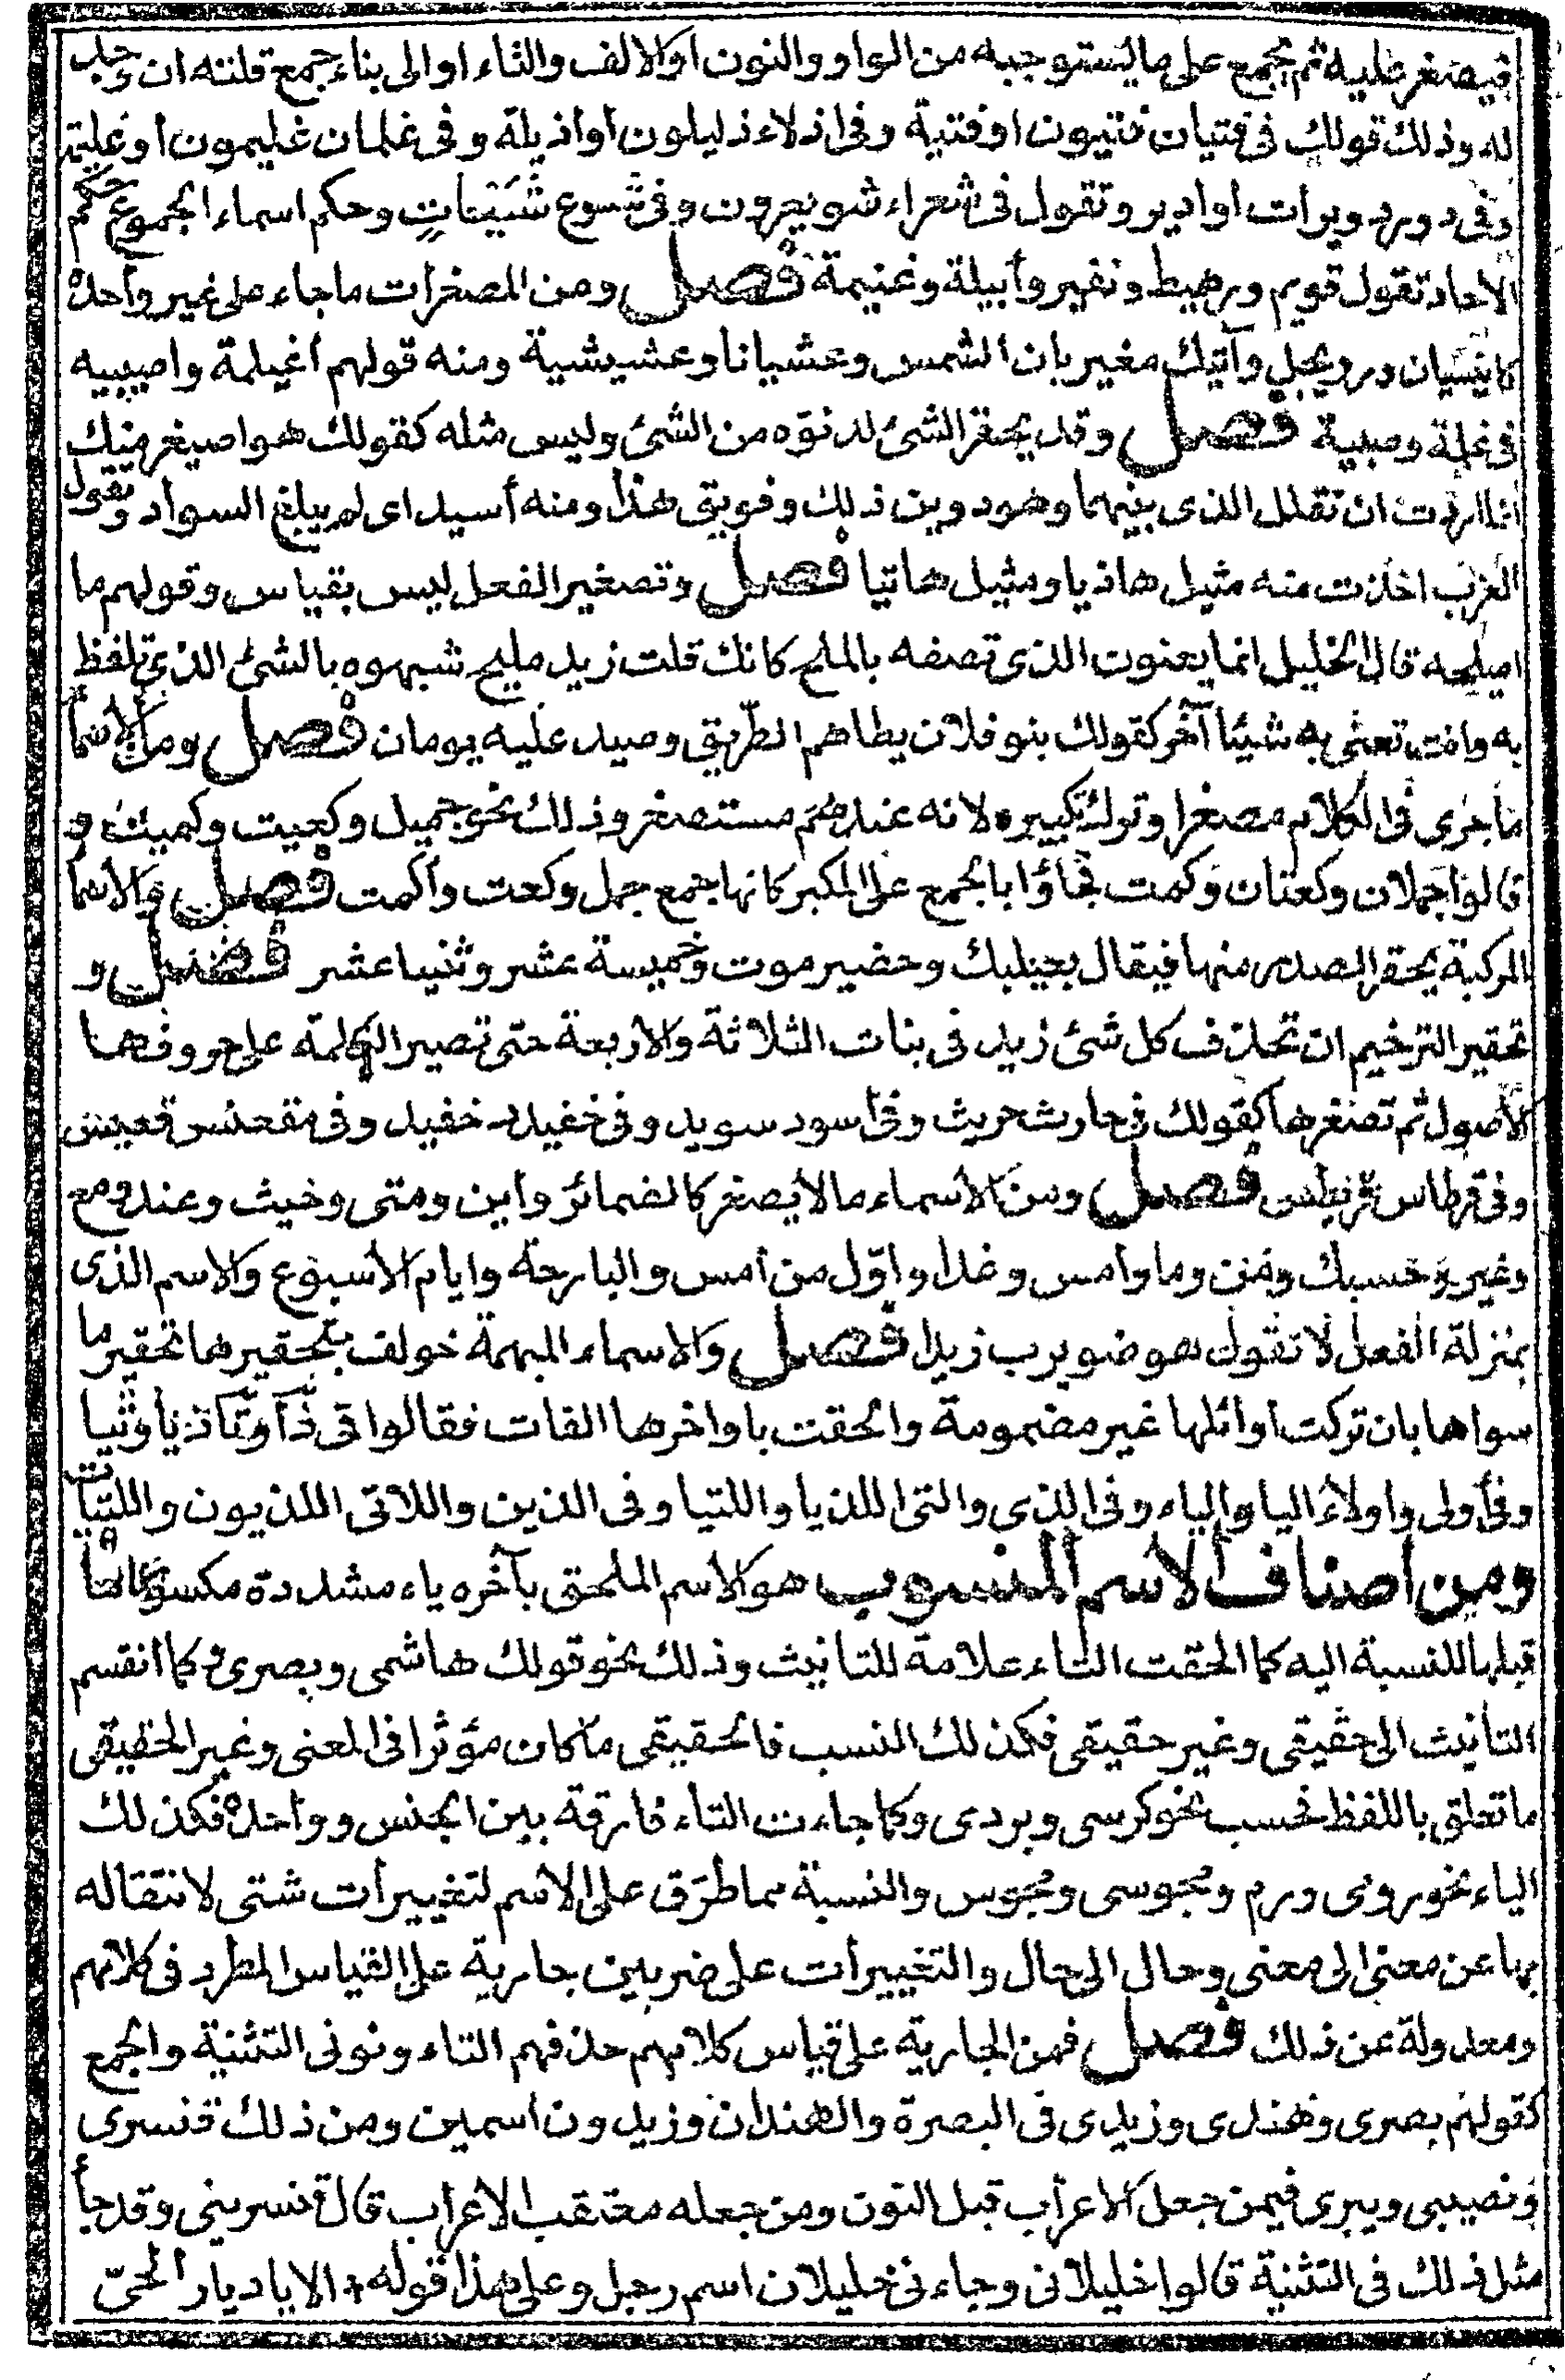 فيصغر عليه ثم يجمع على ما يستوجبه من الواو والنون او الالف والتاء او الى بناء جمع قلته ان وجد
له وذلك قولك فى فتيان فتيون او فتية وفى اذلاء ذليلون أو أذيلة وفى غلمان غليمون أو غليمة
وفى دور دويرات او ادير وتقول فى شعراء شويعرون وفى شسوع شسيعات وحكم اسماء الجموع حكم
الآحاد تقول قويم ورهيط ونفير وأبيلة وغنيمة فصل ومن المصغرات ما جاء على غير واحده
كانيسيان ورويجل وآتيك مغيربان الشمس وعشيانا وعشيشية ومنه قولهم أغيلمة واصيبية
فى غلمة وصبية فصل وقد يحقر الشئ لدنوه من الشئ وليس مثله كقولك هو اصيغر منك
انما اردت ان تقلل الذى بينهما وهو دوين ذلك وفويق هذا ومنه أسيد اى لم يبلغ السواد وتقول
العرب اخذت منه مثيل هاذيا ومثيل هاتيا فصل وتصغير الفعل ليس بقياس وقولهم ما
اميلحه قال الخليل انما يعنون الذى تصفه بالملح كانك قلت زيد مليح شبهوه بالشئ الذى تلفظ
به وانت تعنى به شيئا آخر كقولك بنو فلان يطاهم الطريق وصيد عليه يومان فصل ومن الأسماء
ما جرى فى الكلام مصغرا وترك تكبيره لانه عندهم مستصغر وذلك نحو جميل وكعيت وكميت و
قالوا جملان وكعتان وكمت فجاؤا بالجمع على المكبر كانها جمع جمل وكعت وأكمت فصل والأسماء
المركبة يحقر الصدر منها فيقال بعيلبك وحضيرموت وخميسة عشر وثنيا عشر فصل و
تحقير الترخيم ان تحذف كل شئ زيد فى بنات الثلاثة والاربعة حتى تصير الكلمة على حروفها
الأصول ثم تصغرها كقولك فى حارث حريث وفى أسود سويد وفى خفيدد خفيد وفى مقعنسس قعيس
وفى قرطاس قريطس فصل ومن الأسماء ما لا يصغر كالضمائر واين ومتى وحيث وعند ومع
وغير وحسبك ومن وما وامس وغدا واول من أمس والبارحة وايام الأسبوع والاسم الذى
بمنزلة الفعل لا تقول هو ضويرب زيدا فصل والاسماء المبهمة خولف بتحقيرها تحقير ما
سواها بان تركت اوائلها غير مضمومة والحقت باواخرها الفات فقالوا فى ذا وتا ذيا وتيا
وفى أولى واولاء اليا والياء وفى الذى والتى اللذيا واللتيا وفى الذين واللاتى اللذيون واللتيات
ومن أصناف الاسم المنسوب هو الاسم الملحق بآخره ياء مشددة مكسور ما
قبلها للنسبة اليه كما الحقت التاء علامة للتانيث وذلك نحو قولك هاشمى وبصرى وكما انقسم
التأنيث الى حقيقى وغير حقيقى فكذلك النسب فالحقيقى ما كان مؤثرا فى المعنى وغير الحقيقى
ما تعلق باللفظ فحسب نحو كرسى وبردى وكما جاءت التاء فارقة بين الجنس وواحده فكذلك
الياء نحو رومى وروم ومجوسى ومجوس والنسبة مما طرق على الاسم لتغييرات شتى لانتقاله
بها عن معنى الى معنى وحال الى حال والتغييرات على ضربين جارية على القياس المطرد فى كلامهم
ومعدولة عن ذلك فصل فمن الجارية على قياس كلامهم حذفهم التاء ونونى التثنية والجمع
كقولهم بصرى وهندى وزيدى فى البصرة والهندان وزيدون اسمين ومن ذلك قنسرى
ونصيبى ويبرى فيمن جعل الاعراب قبل النون ومن جعله معتقب الاعراب قال قنسرينى وقد جاء
مثل ذلك فى التثنية قالوا خليلانى وجاءنى خليلان اسم رجل وعلى هذا قوله الا يا ديار الحىّ